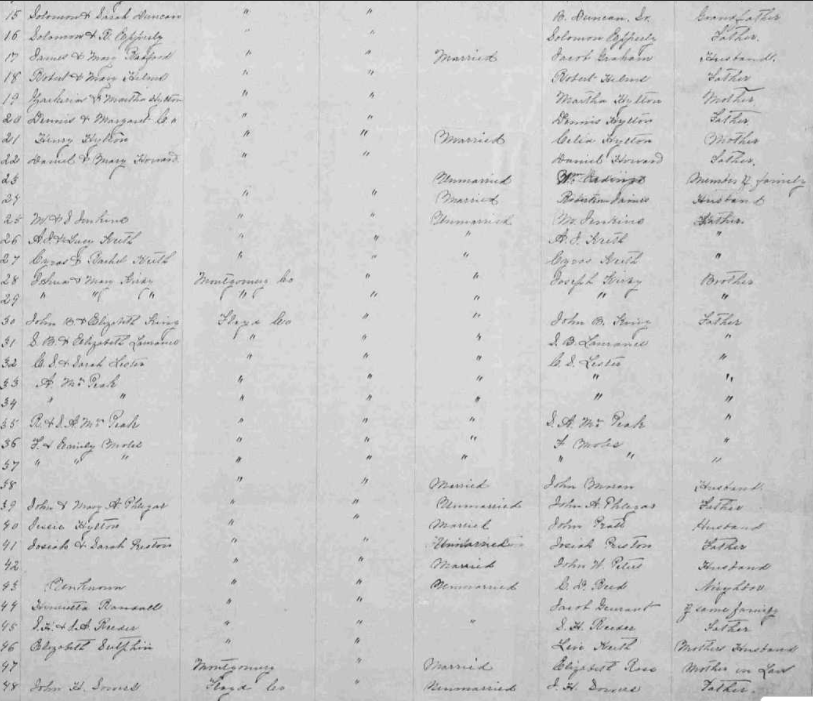 15 Solomon & Sarah Duncan " " B. Duncan, Sr. Grandfather
16 Solomon & R. Epperly " " Solomon Epperly Father.
17 James & Mary Radford " " Married Jacob Graham Husband.
18 Robert & Mary Helms " " Robert Helms Father
19 Zacheria & Martha Hylton " " Martha Hylton Mother
20 Dennis & Margaret " " Dennis Hylton Father
21 Henry Hylton " " Married Celia Hylton Mother
22 Daniel & Mary Howard " " Daniel Howard Father.
23 Unmarried Wm Member of family
24 " " Married James Husband
25 M & J Jenkins " " Unmarried Jenkins Father.
26 A. J. & Lucy Keith " " " A. J. Keith "
27 Cyrus & Rachel Keith " " " Cyrus Keith "
28 & Mary Montgomery Co " " Joseph Brother
29 " " " " " " " " "
30 John B & Elizabeth King Floyd Co " " John B. King Father
31 & Elizabeth " " " "
32 & Sarah Lester " " " Lester "
33 A. Mc Peak " " " " "
34 " " " " " " "
35 Mc Peak " " " Mc Peak "
36 F. & " " " F "
37 " " " " " " " " "
38 " " Married John Husband
39 John & Mary A. Phlegar " " Unmarried John A. Phlegar Father
40 Hylton " " Married John Pratt Husband
41 Josiah & Sarah Preston " " Unmarried Josiah Preston Father
42 " " Married John W. Peters Husband
43 Unknown " " Unmarried Reed Neighbor
44 Henrietta " " Jacob of same family
45 Reeder " " " S. H. Reeder Father
46 Elizabeth Sulphin " " Levi Keith Mothers Husband
47 Montgomery " Married Elizabeth Mother in Law
48 John H. Sowers Floyd Co " Unmarried J. H. Sowers Father.